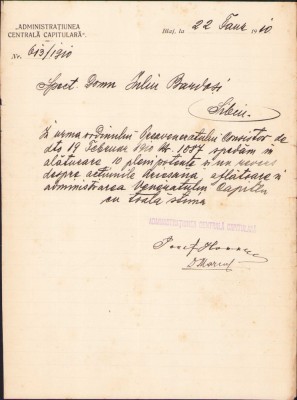 „ADMINISTRAȚIUNEA
CENTRALĂ CAPITULARĂ".
Blaj, la 22 Faur 1910
Nr. 613/1910
Spect. Domn Iuliu Bardosi
Sibiu.
În urma ordinului Preaveneratului Consistor de
dto 19 Februar 1910 Nr. 1087 spedăm în
alăturare 10 plenipotențe și un
despre acțiunile aflătoare în
administrarea Veneratului Capitlu
cu toată stima
ADMINISTRAȚIUNEA CENTRALĂ CAPITULARĂ